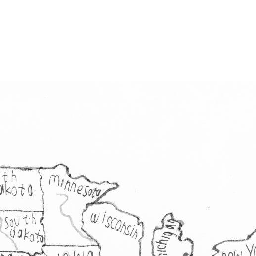 th
akota
minnesota
south
dakota
wisconsin
michigan
iowa
new y